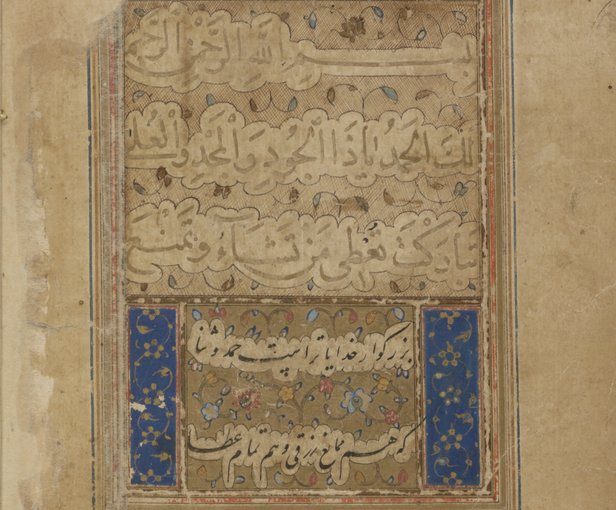 بسم الله الرحمن الرحیم
لك الحمد یا ذا الجود والمجد والعلا
تباركت تعطی من تشاء وتمنع
بزرکوار خدایا تراست حمد و ثنا
که هم مانع رزقی و هم تمام عطا